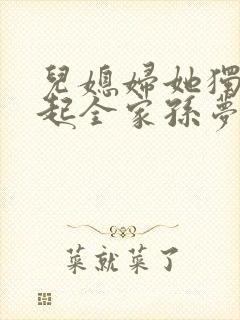 兒媳婦她獨
起全家孫夢
菜就菜了